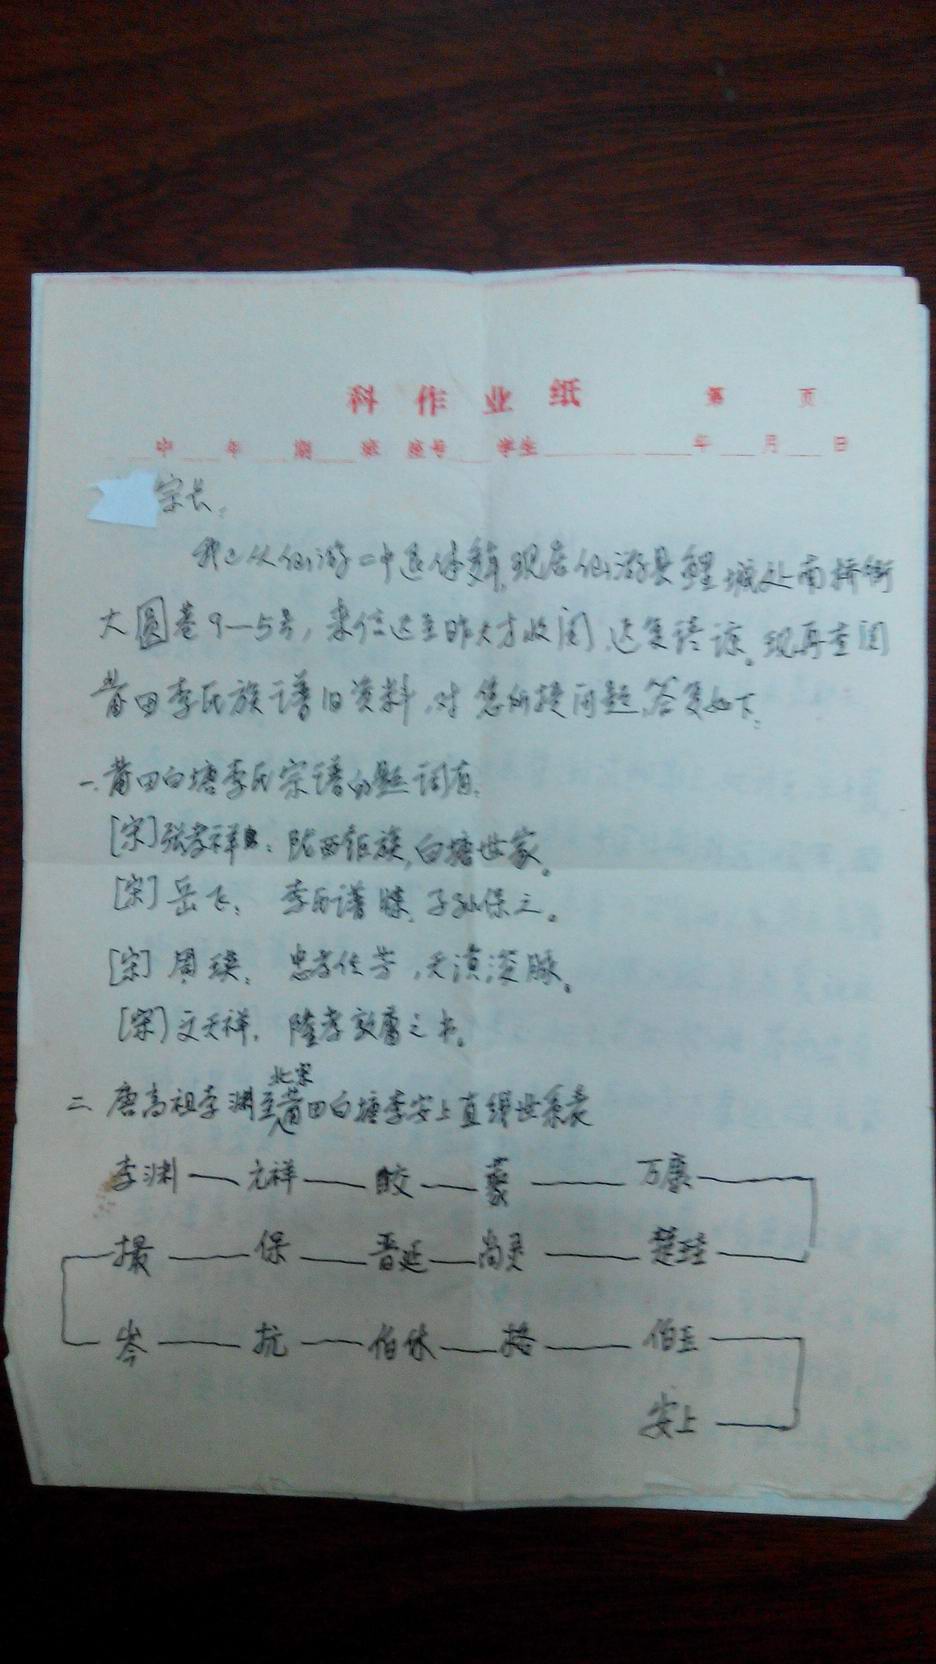 科作业纸 第 页
中 年 期 班 座号 学生 年 月 日
宗长:
我已从仙游二中退休,现居仙游县鲤城处南桥街
大圆巷9—5号,来信迟至昨天才收阅,迟复请谅。现再查阅
莆田李氏族谱旧资料,对您所提问题,答复如下:
一.莆田白塘李氏宗谱的题词有:
[宋]张孝祥:陇西钜族,白塘世家。
[宋]岳飞:李氏谱牒,子孙保之。
[宋]周瑛:忠孝传芳,天潢派脉。
[宋]文天祥:陆孝敦庸之书。
北宋
二.唐高祖李渊至莆田白塘李安上直线世系表
李渊—元祥—皎—蒙—万康
撮—保—晋延—尚灵—楚珪
岑—抗—伯休—格—伯玉
安上